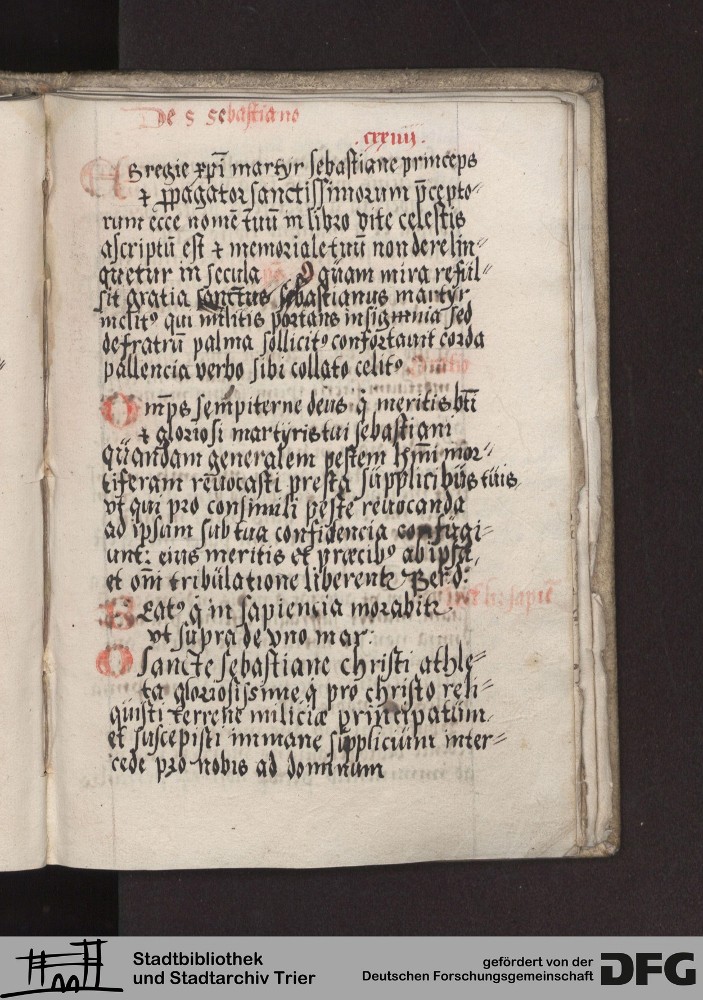 De s sebastiano
cxxiiij.
Egregie xp̄i martyr sebastiane princeps
⁊ ꝓpagator sanctissimorum p̄cepto⸗
rum ecce nomē tuū in libro vite celestis
ascriptū est ⁊ memoriale tuū non derelin⸗
quetur in secula O quam mira reful⸗
sit gratia sanctus sebastianus martyr
inclitꝰ qui militis portans insignnia sed
de fratrū palma sollicitꝰ confortauit corda
pallencia verbo sibi collato celitꝰ
Om̄ps sempiterne deus q̇ meritis bt̄i
⁊ gloriosi martyris tui sebastiani
quandam generalem pestem hoīni mor⸗
tiferam reuocasti presta supplicibus tuis
vt qui pro consimili peste reuocanda
ad ipsum sub tua confidencia confugi⸗
unt: eius meritis et præcibꝰ ab ipsa
et oī tribulatione liberentꝛ Per d:
Beatꝰ q̇ in sapiencia morabitꝛ
vt supra de vno mar:
O Sancte sebastiane christi athle⸗
ta gloriosissime q̇ pro christo reli⸗
quisti terrene miliciæ principatum
et suscepisti immane supplicium inter⸗
cede pro nobis ad dominum
Stadtbibliothek
und Stadtarchiv Trier
gefördert von der
Deutschen Forschungsgemeinschaft
DFG